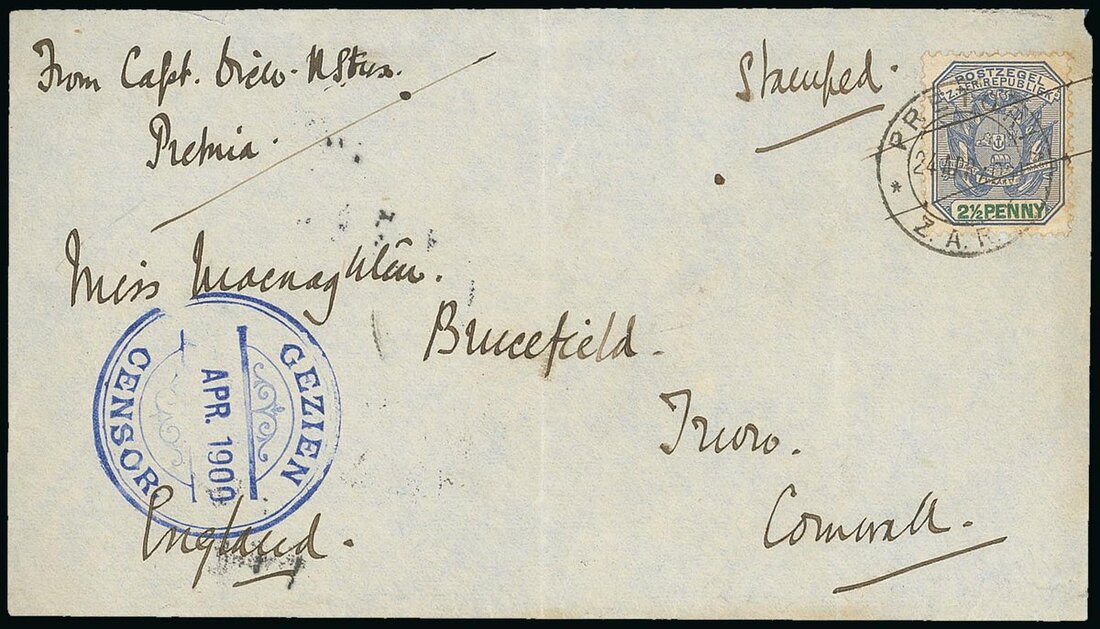 From Capt.
Pretoria.
Stamped.
POSTZEGEL
Z. AFR. REPUBLIEK
2½ PENNY
PRETORIA
24 APR
Z. A. R.
Miss Macnaghten.
Brucefield.
Truro.
Cornwall.
England.
GEZIEN
APR. 1900
CENSOR